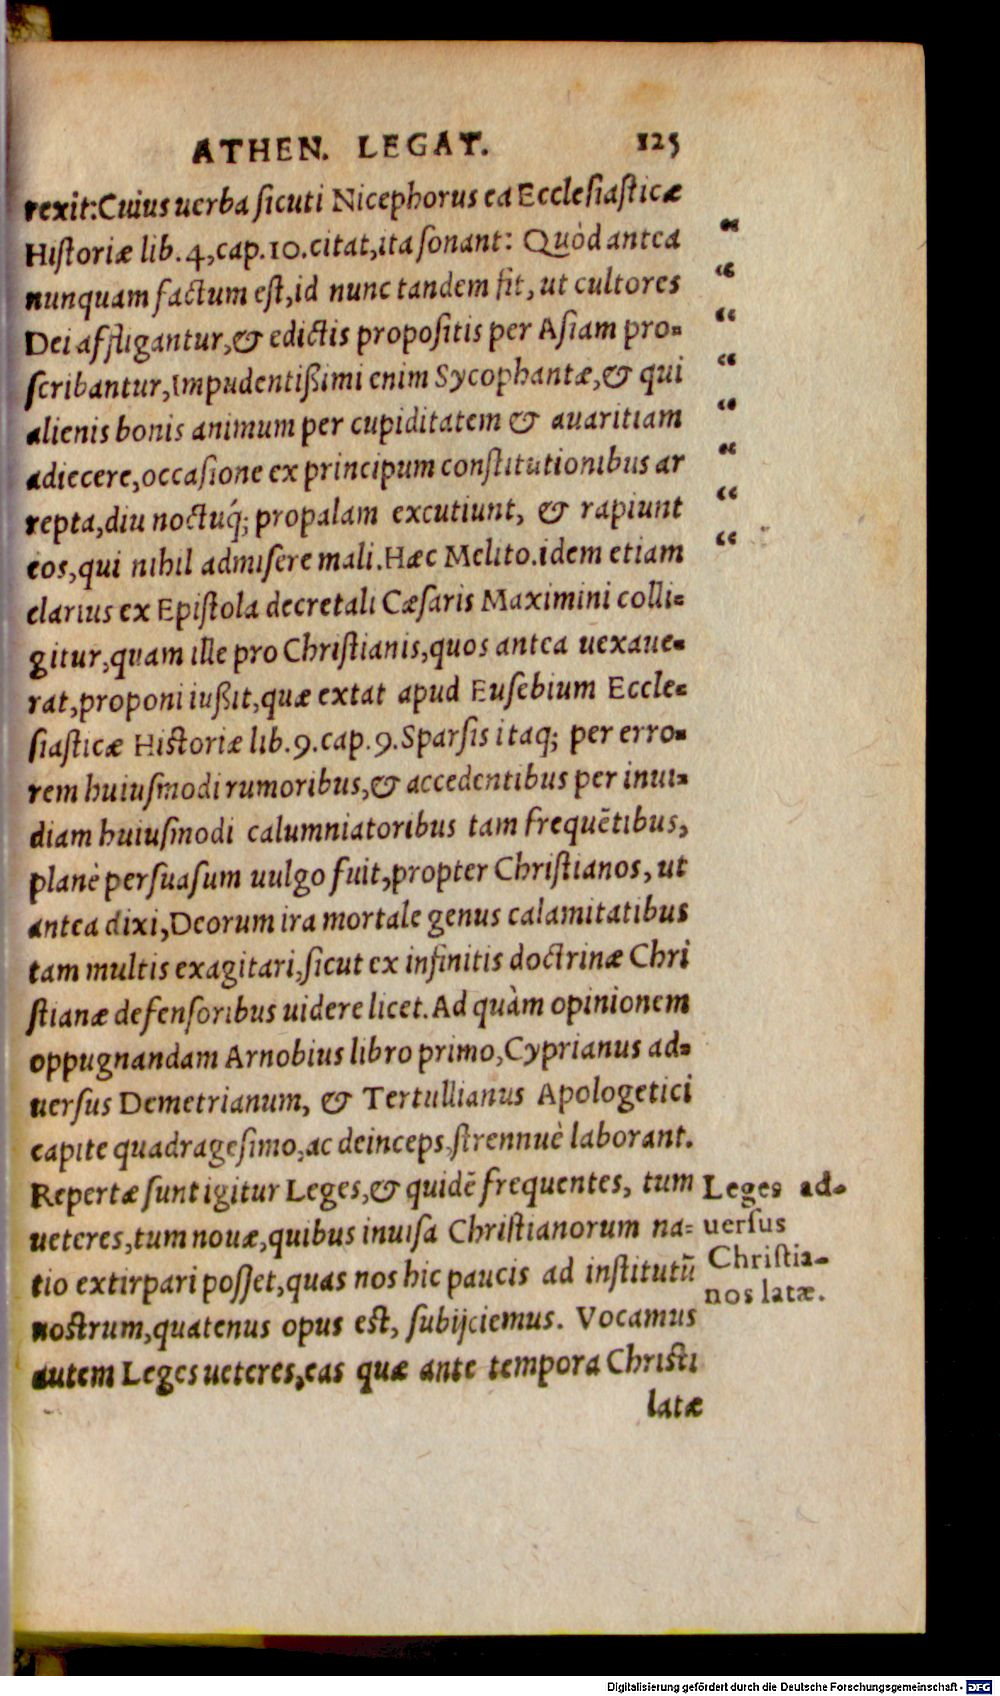 ATHEN. LEGAT. 125
rexit: Cuius uerba sicuti Nicephorus ea Ecclesiasticæ
Historiæ lib. 4, cap. 10. citat, ita sonant: Quòd antea
nunquam factum est, id nunc tandem fit, ut cultores
Dei affligantur, & edictis propositis per Asiam pro-
scribantur, Impudentißimi enim Sycophantæ, & qui
alienis bonis animum per cupiditatem & auaritiam
adiecere, occasione ex principum constitutionibus ar
repta, diu noctuq́; propalam excutiunt, & rapiunt
eos, qui nihil admisere mali. Hæc Melito. idem etiam
clarius ex Epistola decretali Cæsaris Maximini colli-
gitur, quam ille pro Christianis, quos antea uexaue-
rat, proponi iußit, quæ extat apud Eusebium Eccle-
siasticæ Historiæ lib. 9. cap. 9. Sparsis itaq; per erro-
rem huiusmodi rumoribus, & accedentibus per inui-
diam huiusmodi calumniatoribus tam frequētibus,
planè persuasum uulgo fuit, propter Christianos, ut
antea dixi, Deorum ira mortale genus calamitatibus
tam multis exagitari, sicut ex infinitis doctrinæ Chri
stianæ defensoribus uidere licet. Ad quàm opinionem
oppugnandam Arnobius libro primo, Cyprianus ad-
uersus Demetrianum, & Tertullianus Apologetici
capite quadragesimo, ac deinceps, strennuè laborant.
Repertæ sunt igitur Leges, & quidē frequentes, tum
ueteres, tum nouæ, quibus inuisa Christianorum na-
tio extirpari posset, quas nos hic paucis ad institutū
nostrum, quatenus opus est, subijciemus. Vocamus
autem Leges ueteres, eas quæ ante tempora Christi
latæ
“
“
“
“
“
“
“
“
Leges ad-
uersus
Christia-
nos latæ.
Digitalisierung gefördert durch die Deutsche Forschungsgemeinschaft - DFG